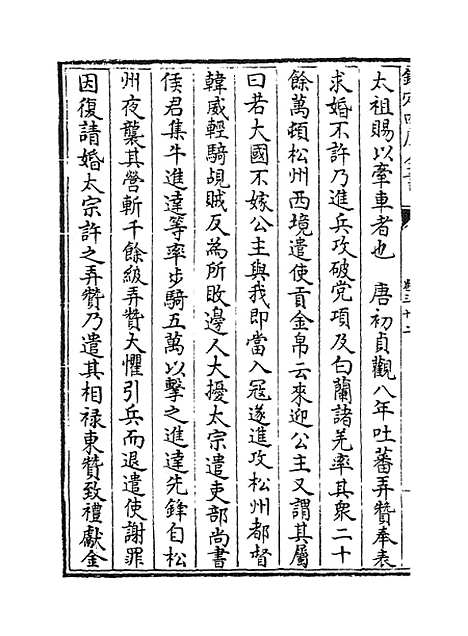 欽定四庫全書
卷三十二
太祖賜以牽車者也　唐初貞觀八年吐蕃弄贊奉表
求婚不許乃進兵攻破党項及白蘭諸羌率其衆二十
餘萬頓松州西境遣使貢金帛云來迎公主又謂其屬
曰若大國不嫁公主與我即當入冦遂進攻松州都督
韓威輕騎覘賊反為所敗邊人大擾太宗遣吏部尚書
侯君集牛進達等率步騎五萬以擊之進達先鋒自松
州夜襲其營斬千餘級弄贊大懼引兵而退遣使謝罪
因復請婚太宗許之弄贊乃遣其相禄東贊致禮獻金